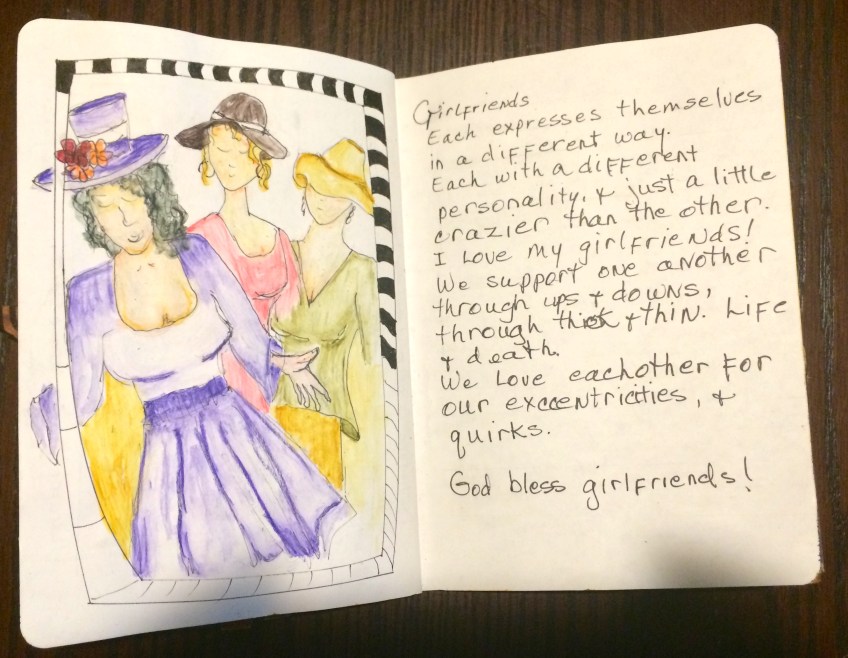 Girlfriends
Each expresses themselves
in a different way.
Each with a different
personality, & just a little
crazier than the other.
I love my girlfriends!
We support one another
through ups & downs,
through thick & thin. Life
& death.
We love eachother for
our exccentricities, &
quirks.
God bless girlfriends!